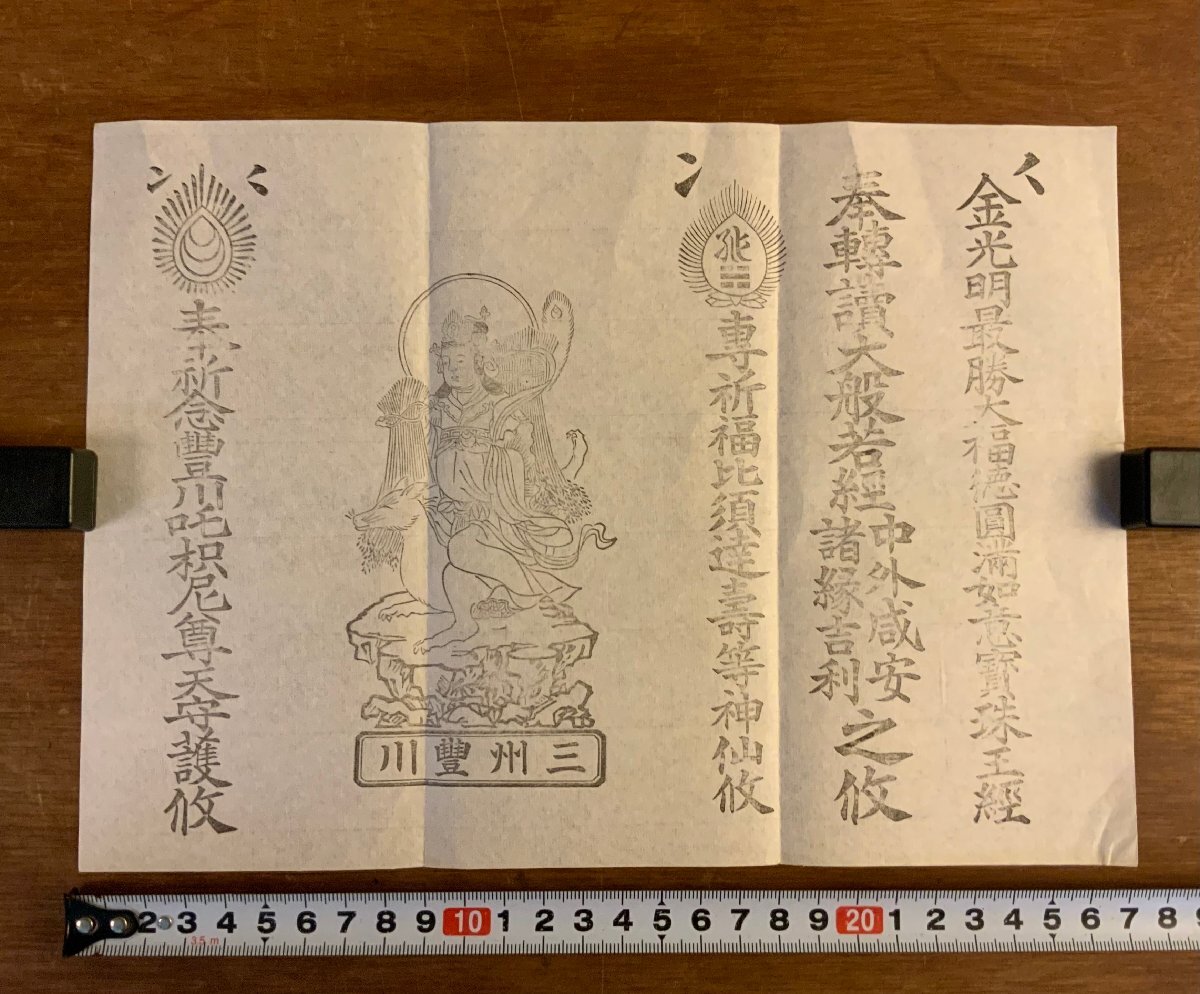 金光明最勝大福德圓滿如意寶珠王經
奉轉讀大般若經
中外咸安
諸縁吉利
之攸
專祈福比須達壽等神仙攸
三州豐川
奉祈念豐川吒枳尼尊天守護攸
2 3 4 5 6 7 8 9 10 1 2 3 4 5 6 7 8 9 20 1 2 3 4 5 6 7 8 9
3.5 m